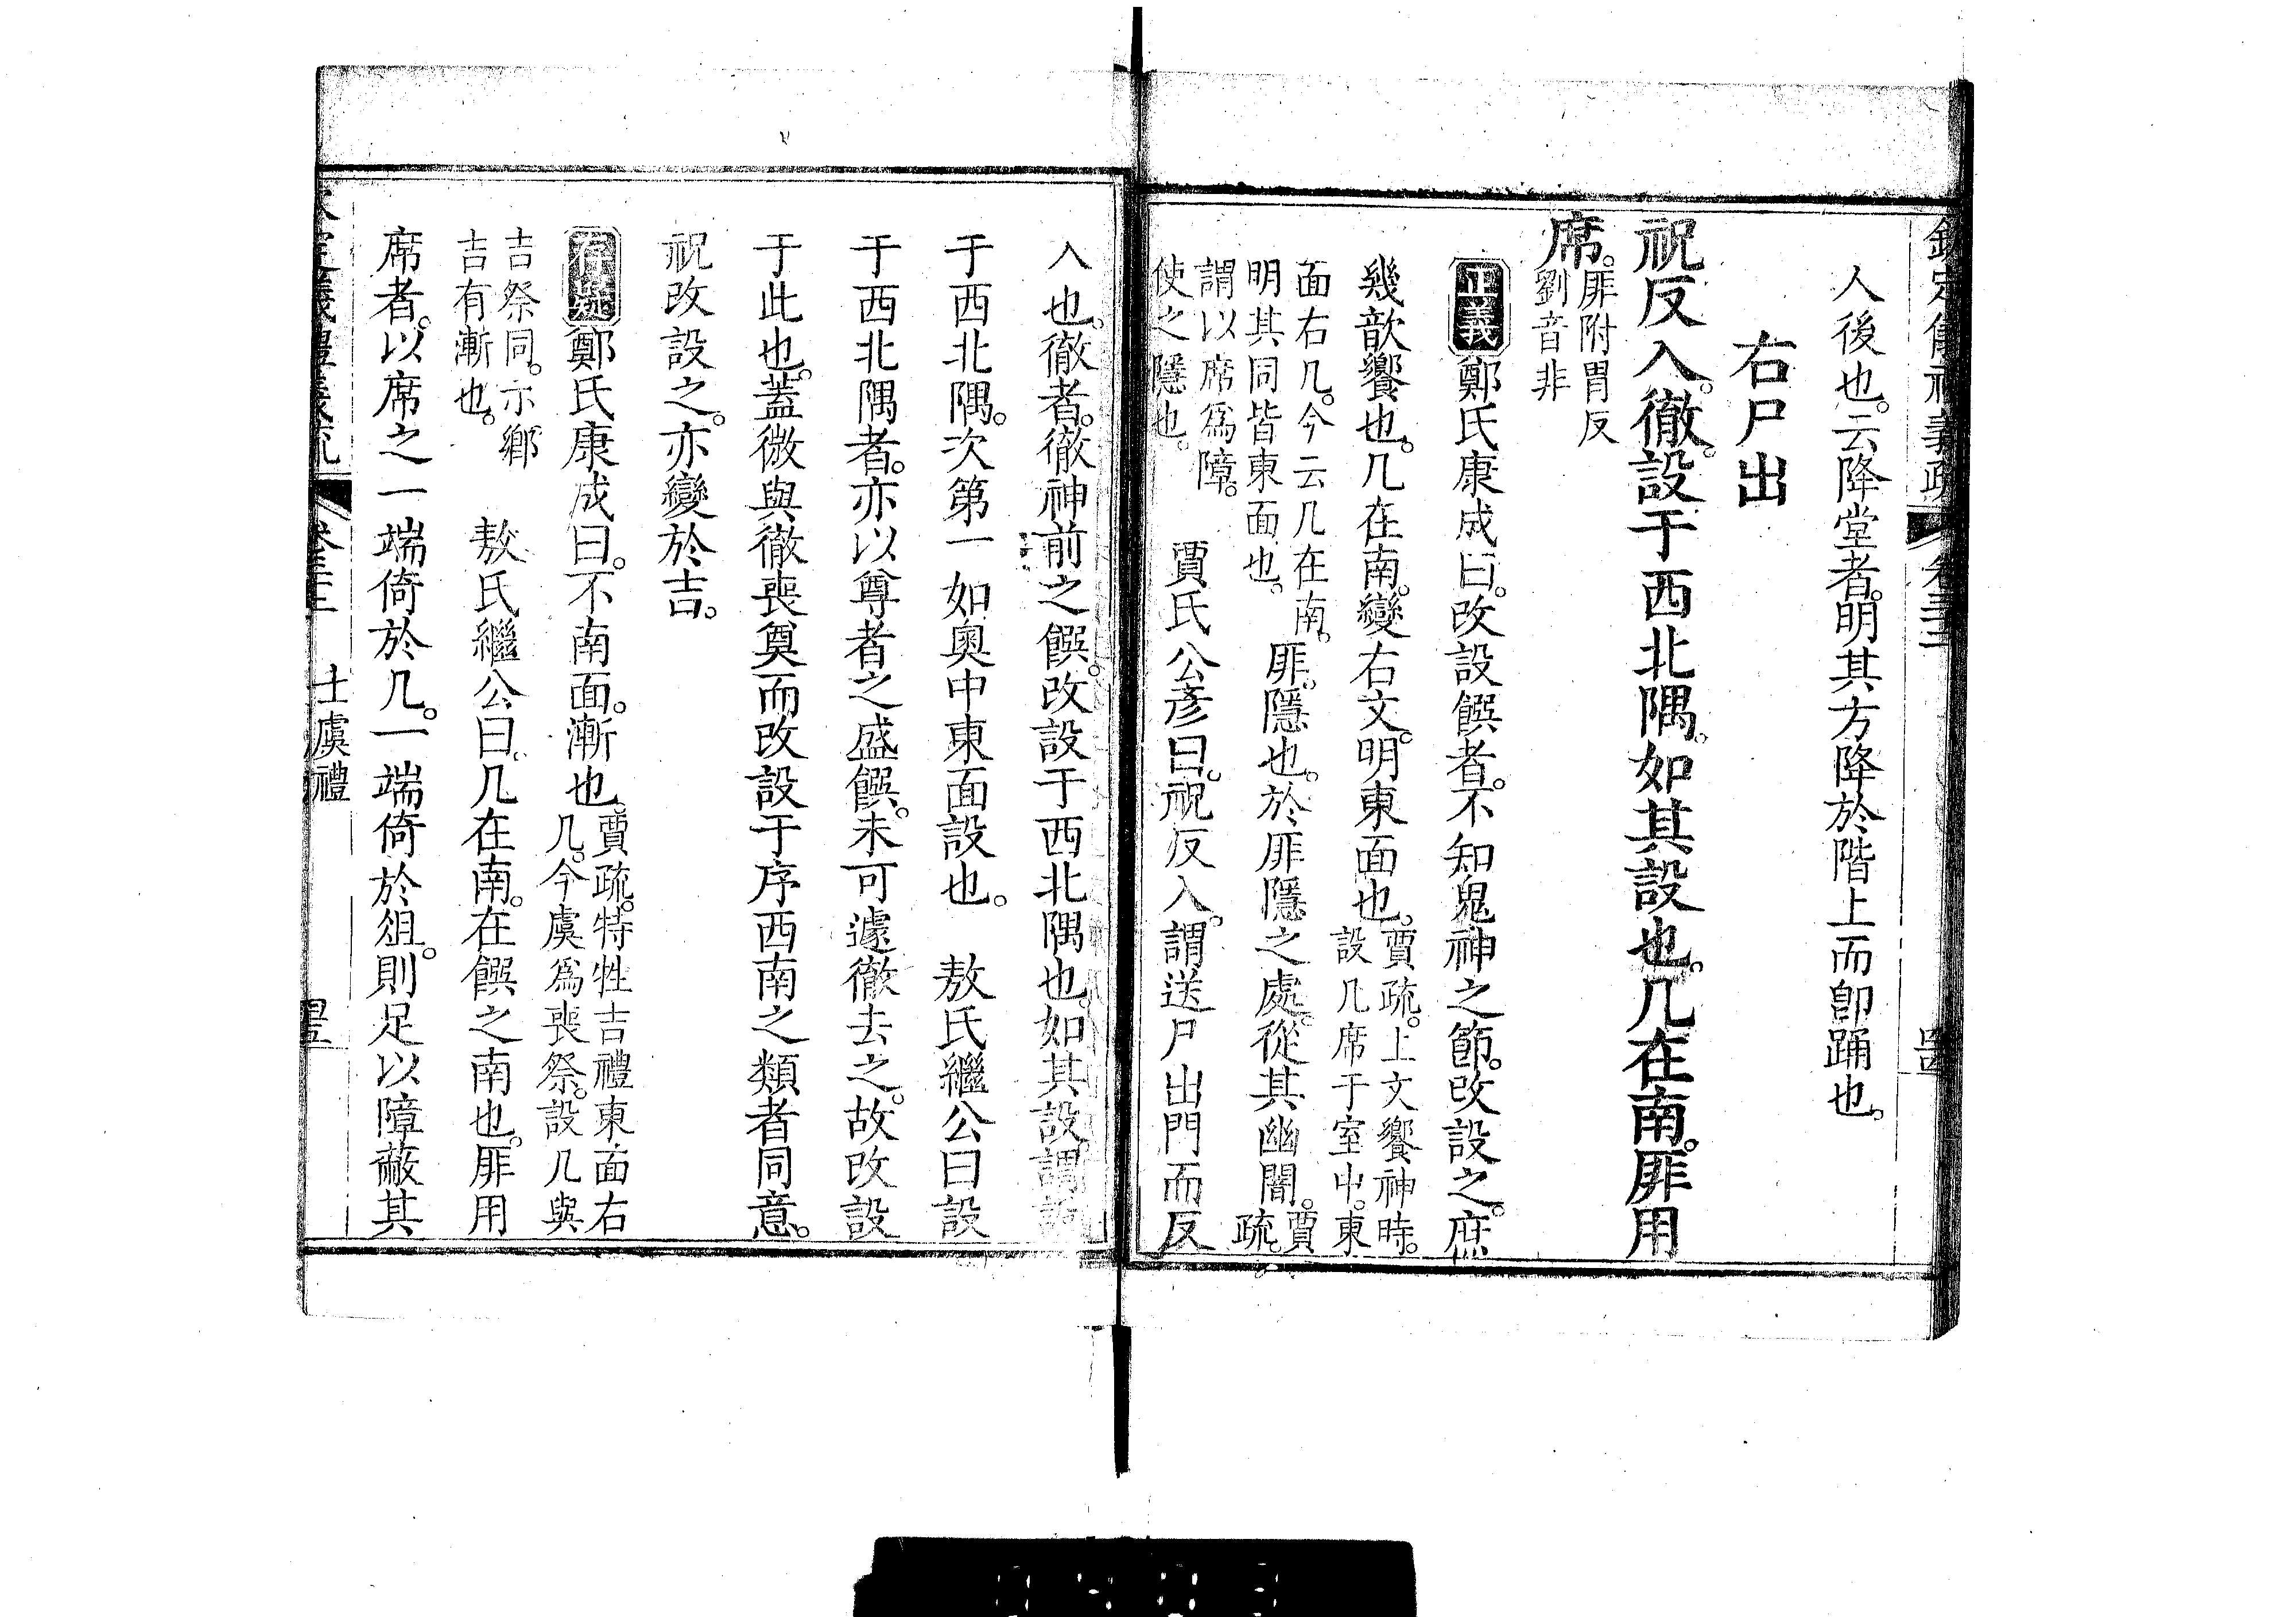 欽定儀禮義疏 卷三十三 四十四
人後也。云降堂者。明其方降於階上而卽踊也。
右尸出
祝反入。徹。設于西北隅。如其設也。几在南。厞用
席。厞附胃反
劉音非
正義鄭氏康成曰。改設饌者。不知鬼神之節。改設之。庶
幾歆饗也。几在南。變右文。明東面也。賈疏。上文饗神時。
設几席于室中。東
面右几。今云几在南。
明其同皆東面也。厞。隱也。於厞隱之處。從其幽闇。賈
疏。
謂以席爲障。
使之隱也。賈氏公彥曰。祝反入。謂送尸出門而反
入也。徹者。徹神前之饌。改設于西北隅也。如其設。謂設
于西北隅。次第一如奧中東面設也。敖氏繼公曰設
于西北隅者。亦以尊者之盛饌。未可遽徹去之。故改設
于此也。蓋微與徹喪奠而改設于序西南之類者同意。
祝改設之。亦變於吉。
存疑鄭氏康成曰。不南面。漸也。賈疏。特牲吉禮東面右
几。今虞爲喪祭。設几與
吉祭同。示鄉
吉有漸也。敖氏繼公曰。几在南。在饌之南也。厞用
席者。以席之一端倚於几。一端倚於俎。則足以障蔽其
士虞禮